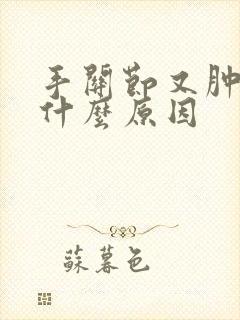 手關節又肿
什麼原因
蘇暮色